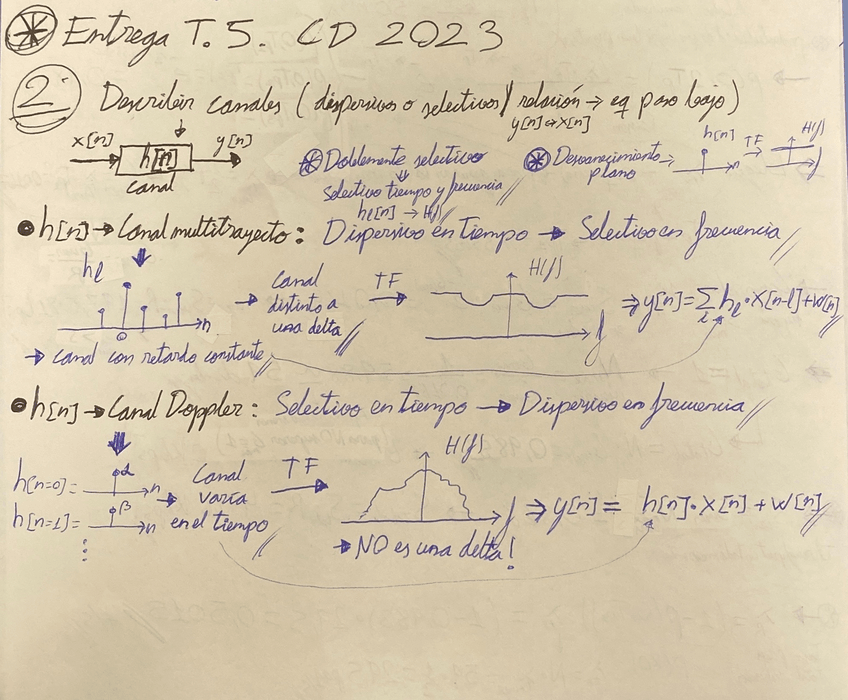 * Entrega T.5. CD 2023
2. Describir canales (dispersivos o selectivos / relación → eq paso bajo)
y[n] ↔ x[n]
x[n] → h[n] → y[n]
canal
* Doblemente selectivo
Selectivo tiempo y frecuencia //
hl[n] → H(f)
* Desvanecimiento plano
h[n] TF H(f)
n f
• h[n] → Canal multitrayecto: Dispersivo en Tiempo → Selectivo en frecuencia //
hl
0 n
→ Canal distinto a una delta //
TF
H(f)
f
⇒ y[n] = Σ hl · x[n-l] + w[n] //
l
→ canal con retardo constante //
• h[n] → Canal Doppler: Selectivo en tiempo → Dispersivo en frecuencia //
h[n=0] = α n
h[n=1] = β n
⋮
→ Canal varia en el tiempo //
TF
H(f)
f
⇒ y[n] = h[n] · x[n] + w[n] //
→ NO es una delta!